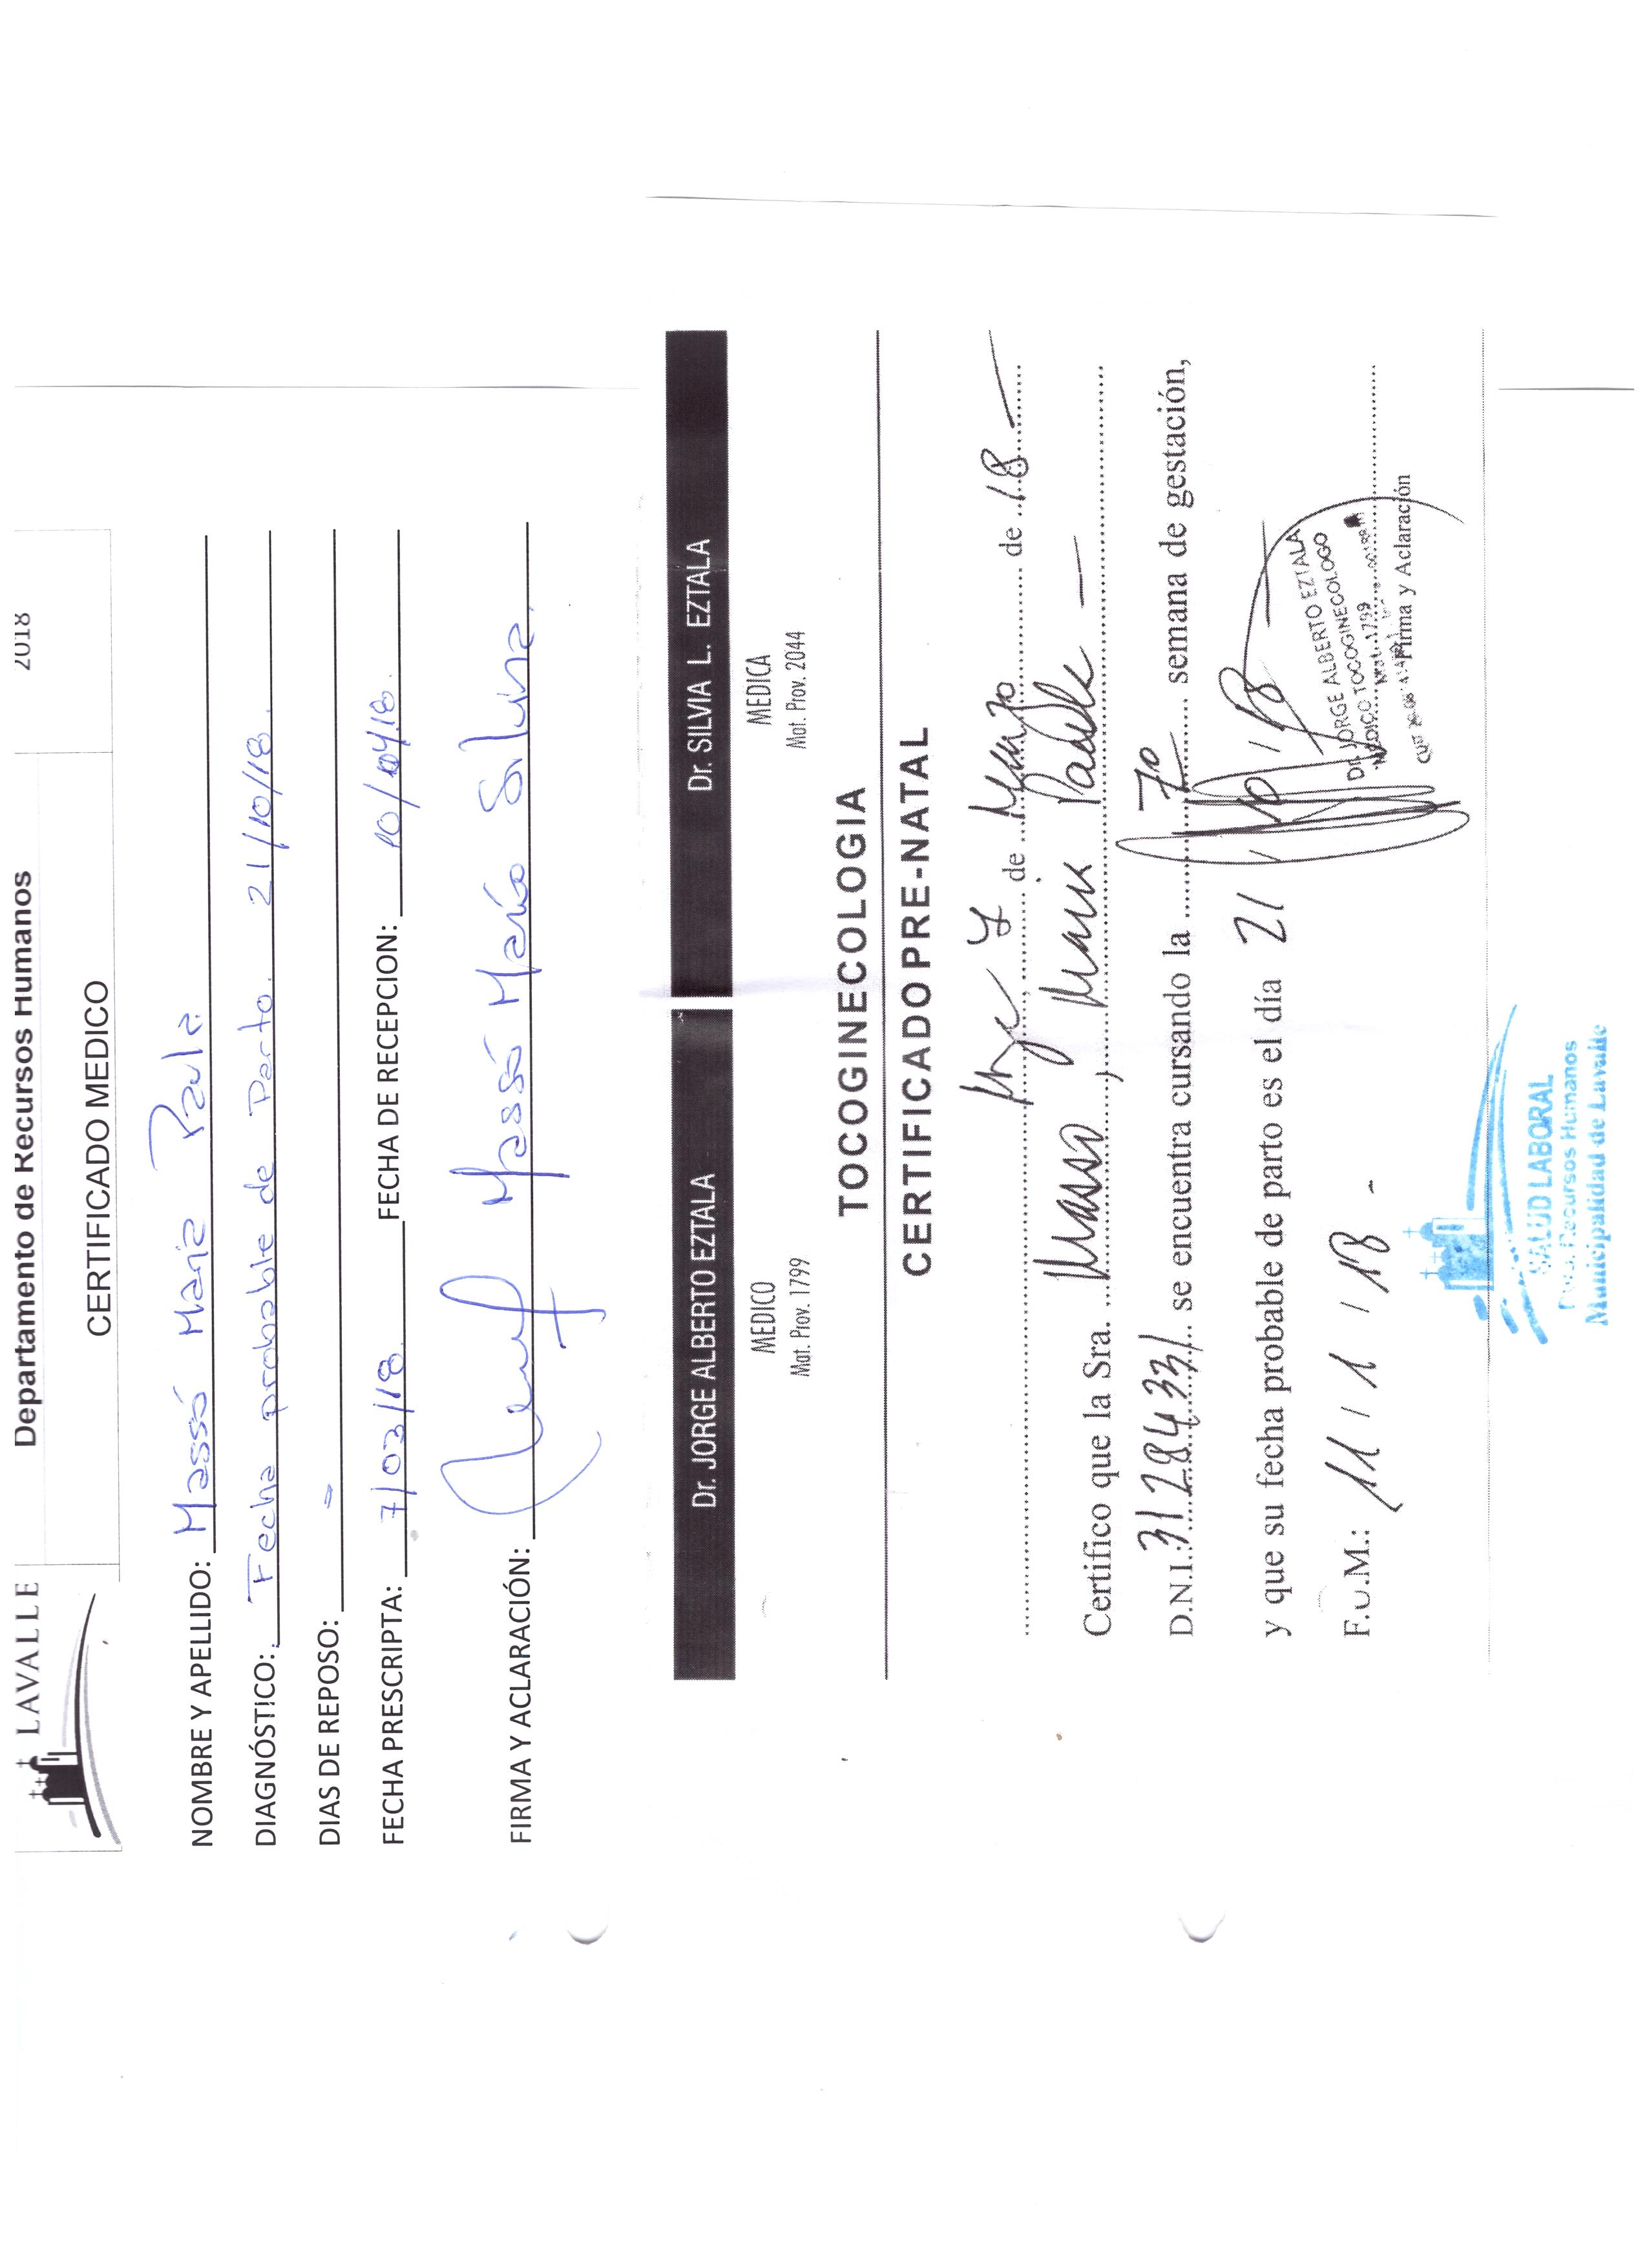 LAVALLE
Departamento de Recursos Humanos
2018
CERTIFICADO MEDICO
NOMBRE Y APELLIDO: Massó María Paula
DIAGNÓSTICO: Fecha probable de Parto. 21/10/18.
DIAS DE REPOSO: =
FECHA PRESCRIPTA: 7/03/18 FECHA DE RECEPCION: 10/04/18.
FIRMA Y ACLARACIÓN: Massó María Silvina.
Dr. JORGE ALBERTO EZTALA Dr. SILVIA L. EZTALA
MEDICO MEDICA
Mat. Prov. 1799 Mat. Prov. 2044
TOCOGINECOLOGIA
CERTIFICADO PRE-NATAL
7 de Marzo de 18
Certifico que la Sra. Masso, Maria Paula
D.N.I.: 31284331 se encuentra cursando la 7º semana de gestación,
y que su fecha probable de parto es el día 21 / 10 / 18
F.U.M.: 11 / 1 / 18 -
Dr. JORGE ALBERTO EZTALA
MEDICO TOCOGINECOLOGO
Mat. 1799
Firma y Aclaración
SALUD LABORAL
Recursos Humanos
Municipalidad de Lavalle